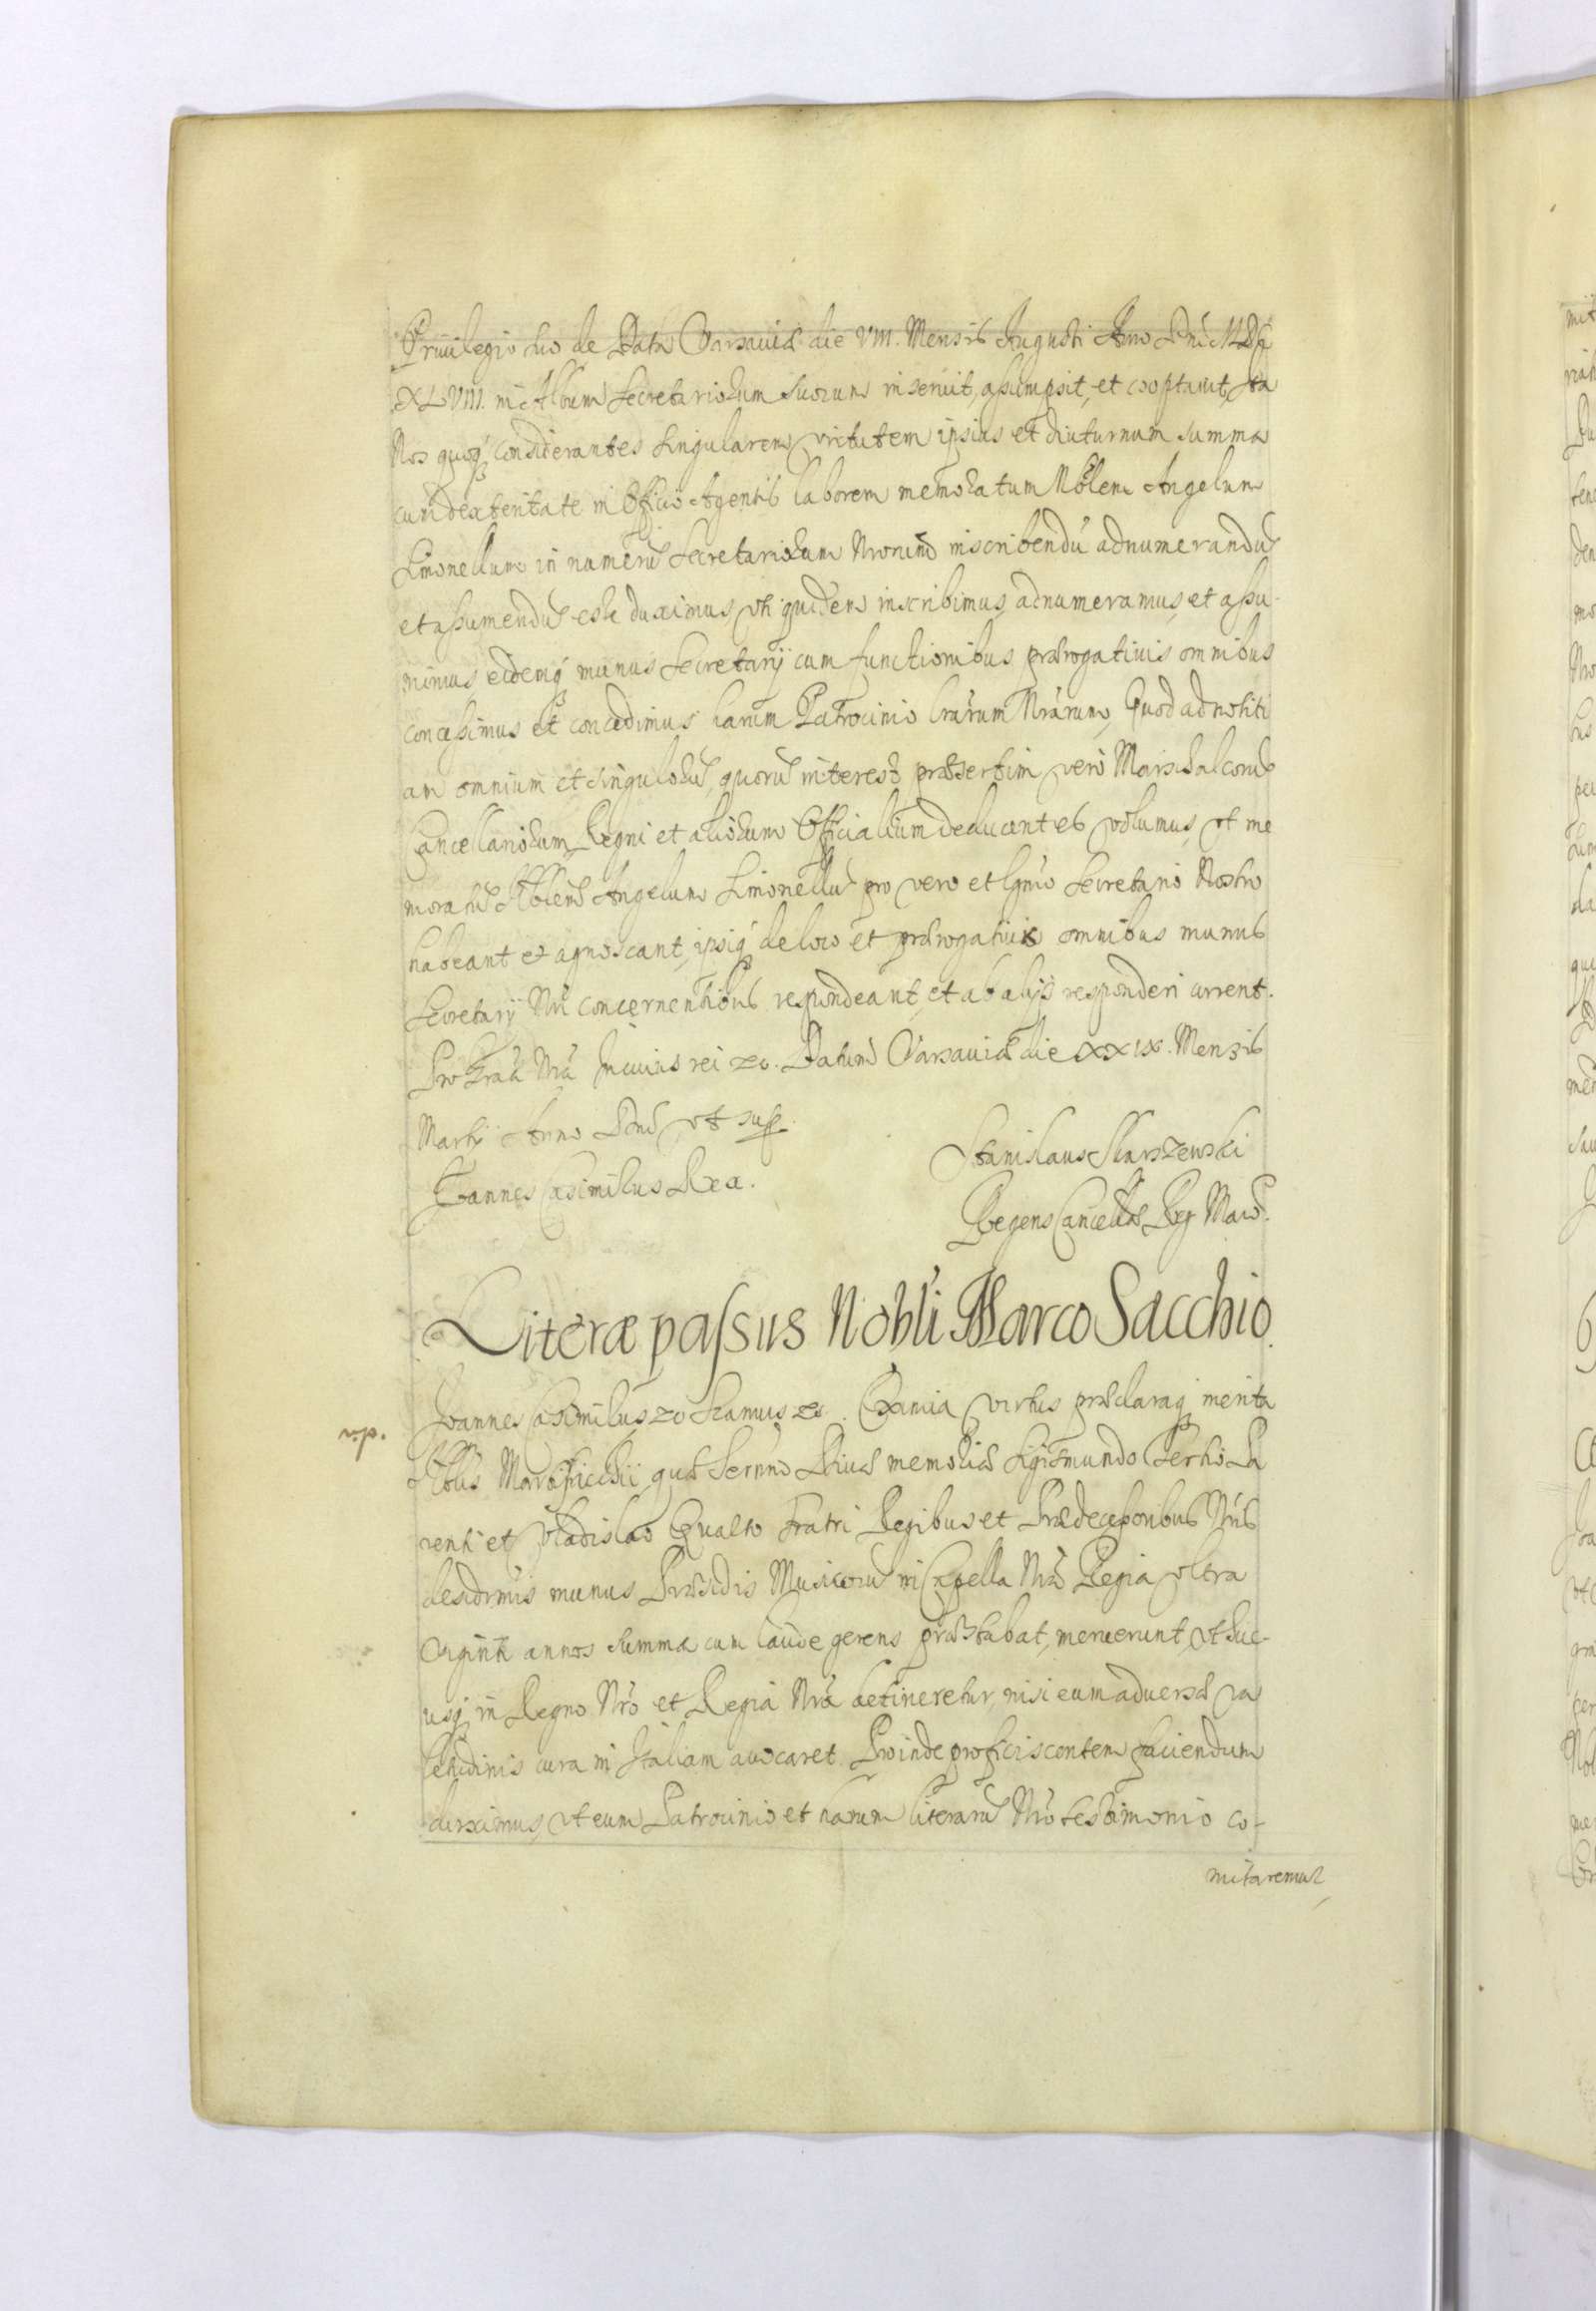 Priuilegio suo de Data Varsauiæ die VIII. Mensis Augusti Año Dñi MDC
XLVIII. in Album Secretariorum suorum inseruit, assumpsit, et cooptauit, Ita
Nos quoq, considerantes singularem virtutem ipsius et diuturnum summa
cum dexteritate in Officio Agentis laborem memoratum Nõblem Angelum
Limonellum in numerũ Secretariorum Nrorum inscribendũ adnumerandũ
et assumendũ esse duximus, vti quidem inscribimus, adnumeramus, et assu-
mimus, eidemq, munus Secretarij cum functionibus prærogatiuis omnibus
concessimus et concedimus harum Patrocinio lrarum Nrarum, Quod ad notiti
am omnium et singulorũ, quorũ interest, præsertim verò Marschalcorũ
Cancellariorum Regni et aliorum Officialium deducentes volumus, vt me
moratũ Nõblem Angelum Limonellũ pro vero et lgmo Secretario Nostro
habeant et agnoscant, ipsiq, de loco et prærogatiuis omnibus munus
Secretarij Nri concernentibus respondeant, et ab alijs responderi current.
Pro Gratia Nra In cuius rei &c. Datum Varsauiæ die XXIX. Mensis
Martij Anno Dom̃ vt sup.
Stanislaus Skarszewski
Joannes Casimirus Rex.
Regens Cancellar Reg Maio.
Literæ passus Nobli Marco Sacchio.
Joannes Casimirus &c Signamus &c. Eximia virtus præclaraq, merita
Nõblis Marci Scacchii, quæ Serm̃o Diuæ memoriæ Sigismundo Tertio Pa
renti et Vladislao Quarto Fratri Regibus et Prædecessoribus Nris
desid̃mis munus Præsidis Musicorũ in Capella Nra Regia vltra
viginti annos summa cum laude gerens præstabat, meruerunt, vt huc-
usq, in Regno Nro et Regia Nra detineretur, nisi eum aduersæ va
letudinis cura in Italiam auocaret. Proinde proficiscentem faciendum
duximus, vt eum Patrocinio et harum literarũ Nro testimonio co-
mitaremur